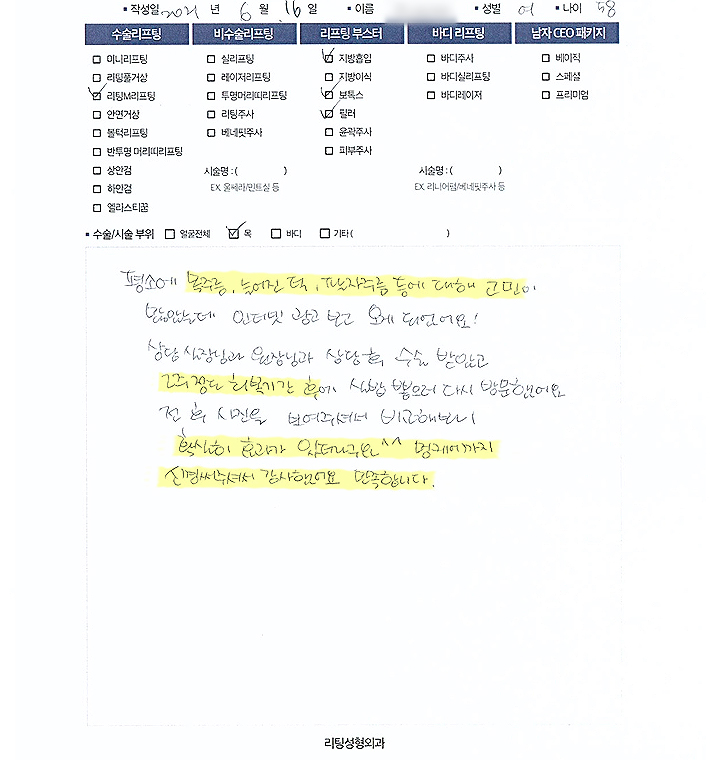 ▪ 작성일 2021 년 6 월 16 일 ▪ 이름 ▪ 성별 여 ▪ 나이 58
수술리프팅 비수술리프팅 리프팅 부스터 바디 리프팅 남자 CEO 패키지
□ 미니리프팅 □ 실리프팅 ☑ 지방흡입 □ 바디주사 □ 베이직
□ 리팅풀거상 □ 레이저리프팅 □ 지방이식 □ 바디실리프팅 □ 스페셜
☑ 리팅M리프팅 □ 투명머리띠리프팅 ☑ 보톡스 □ 바디레이저 □ 프리미엄
□ 안면거상 □ 리팅주사 ☑ 필러
□ 볼턱리프팅 □ 베네핏주사 □ 윤곽주사
□ 반투명 머리띠리프팅 □ 피부주사
□ 상안검 시술명 : ( ) 시술명 : ( )
□ 하안검 EX. 울쎄라/민트실 등 EX. 리니어펌/베네핏주사 등
□ 엘라스티꿈
▪ 수술/시술 부위 □ 얼굴전체 ☑ 목 □ 바디 □ 기타 ( )
평소에 목주름, 늘어진 턱, 팔자주름 등에 대해 고민이
많았는데 인터넷 광고 보고 오게 되었어요!
상담 실장님과 원장님과 상담 후 수술 받았고
2주정도 회복기간 후에 실밥 뽑으러 다시 방문했어요
전 후 사진을 보여주셔서 비교해보니
확실히 효과가 있더라구요^^ 멍케어까지
신경써주셔서 감사했어요 만족합니다.
리팅성형외과